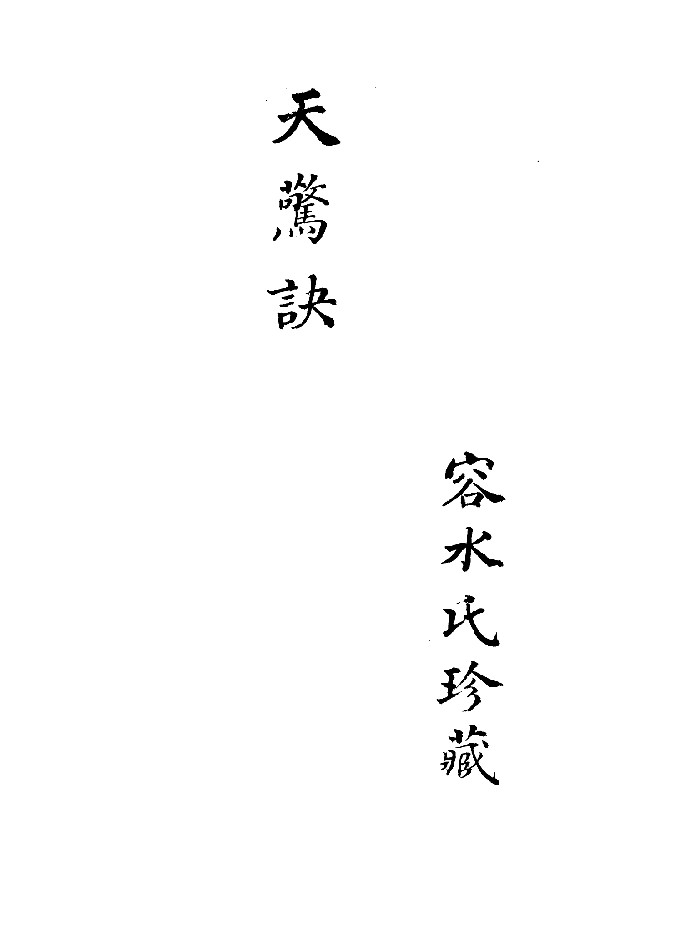 容水氏珍藏
天驚訣